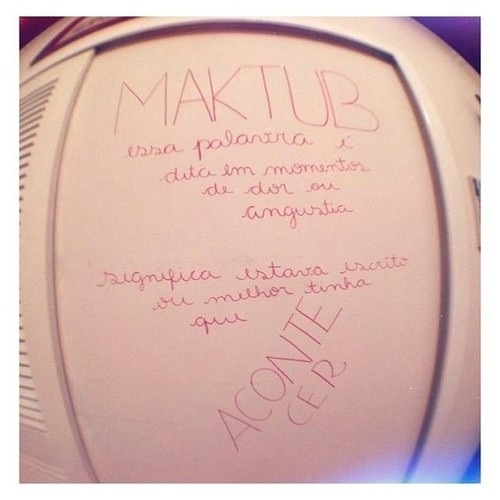 MAKTUB
essa palavra é
dita em momentos
de dor ou
angustia
significa estava escrito
ou melhor tinha
que
ACONTE
CER